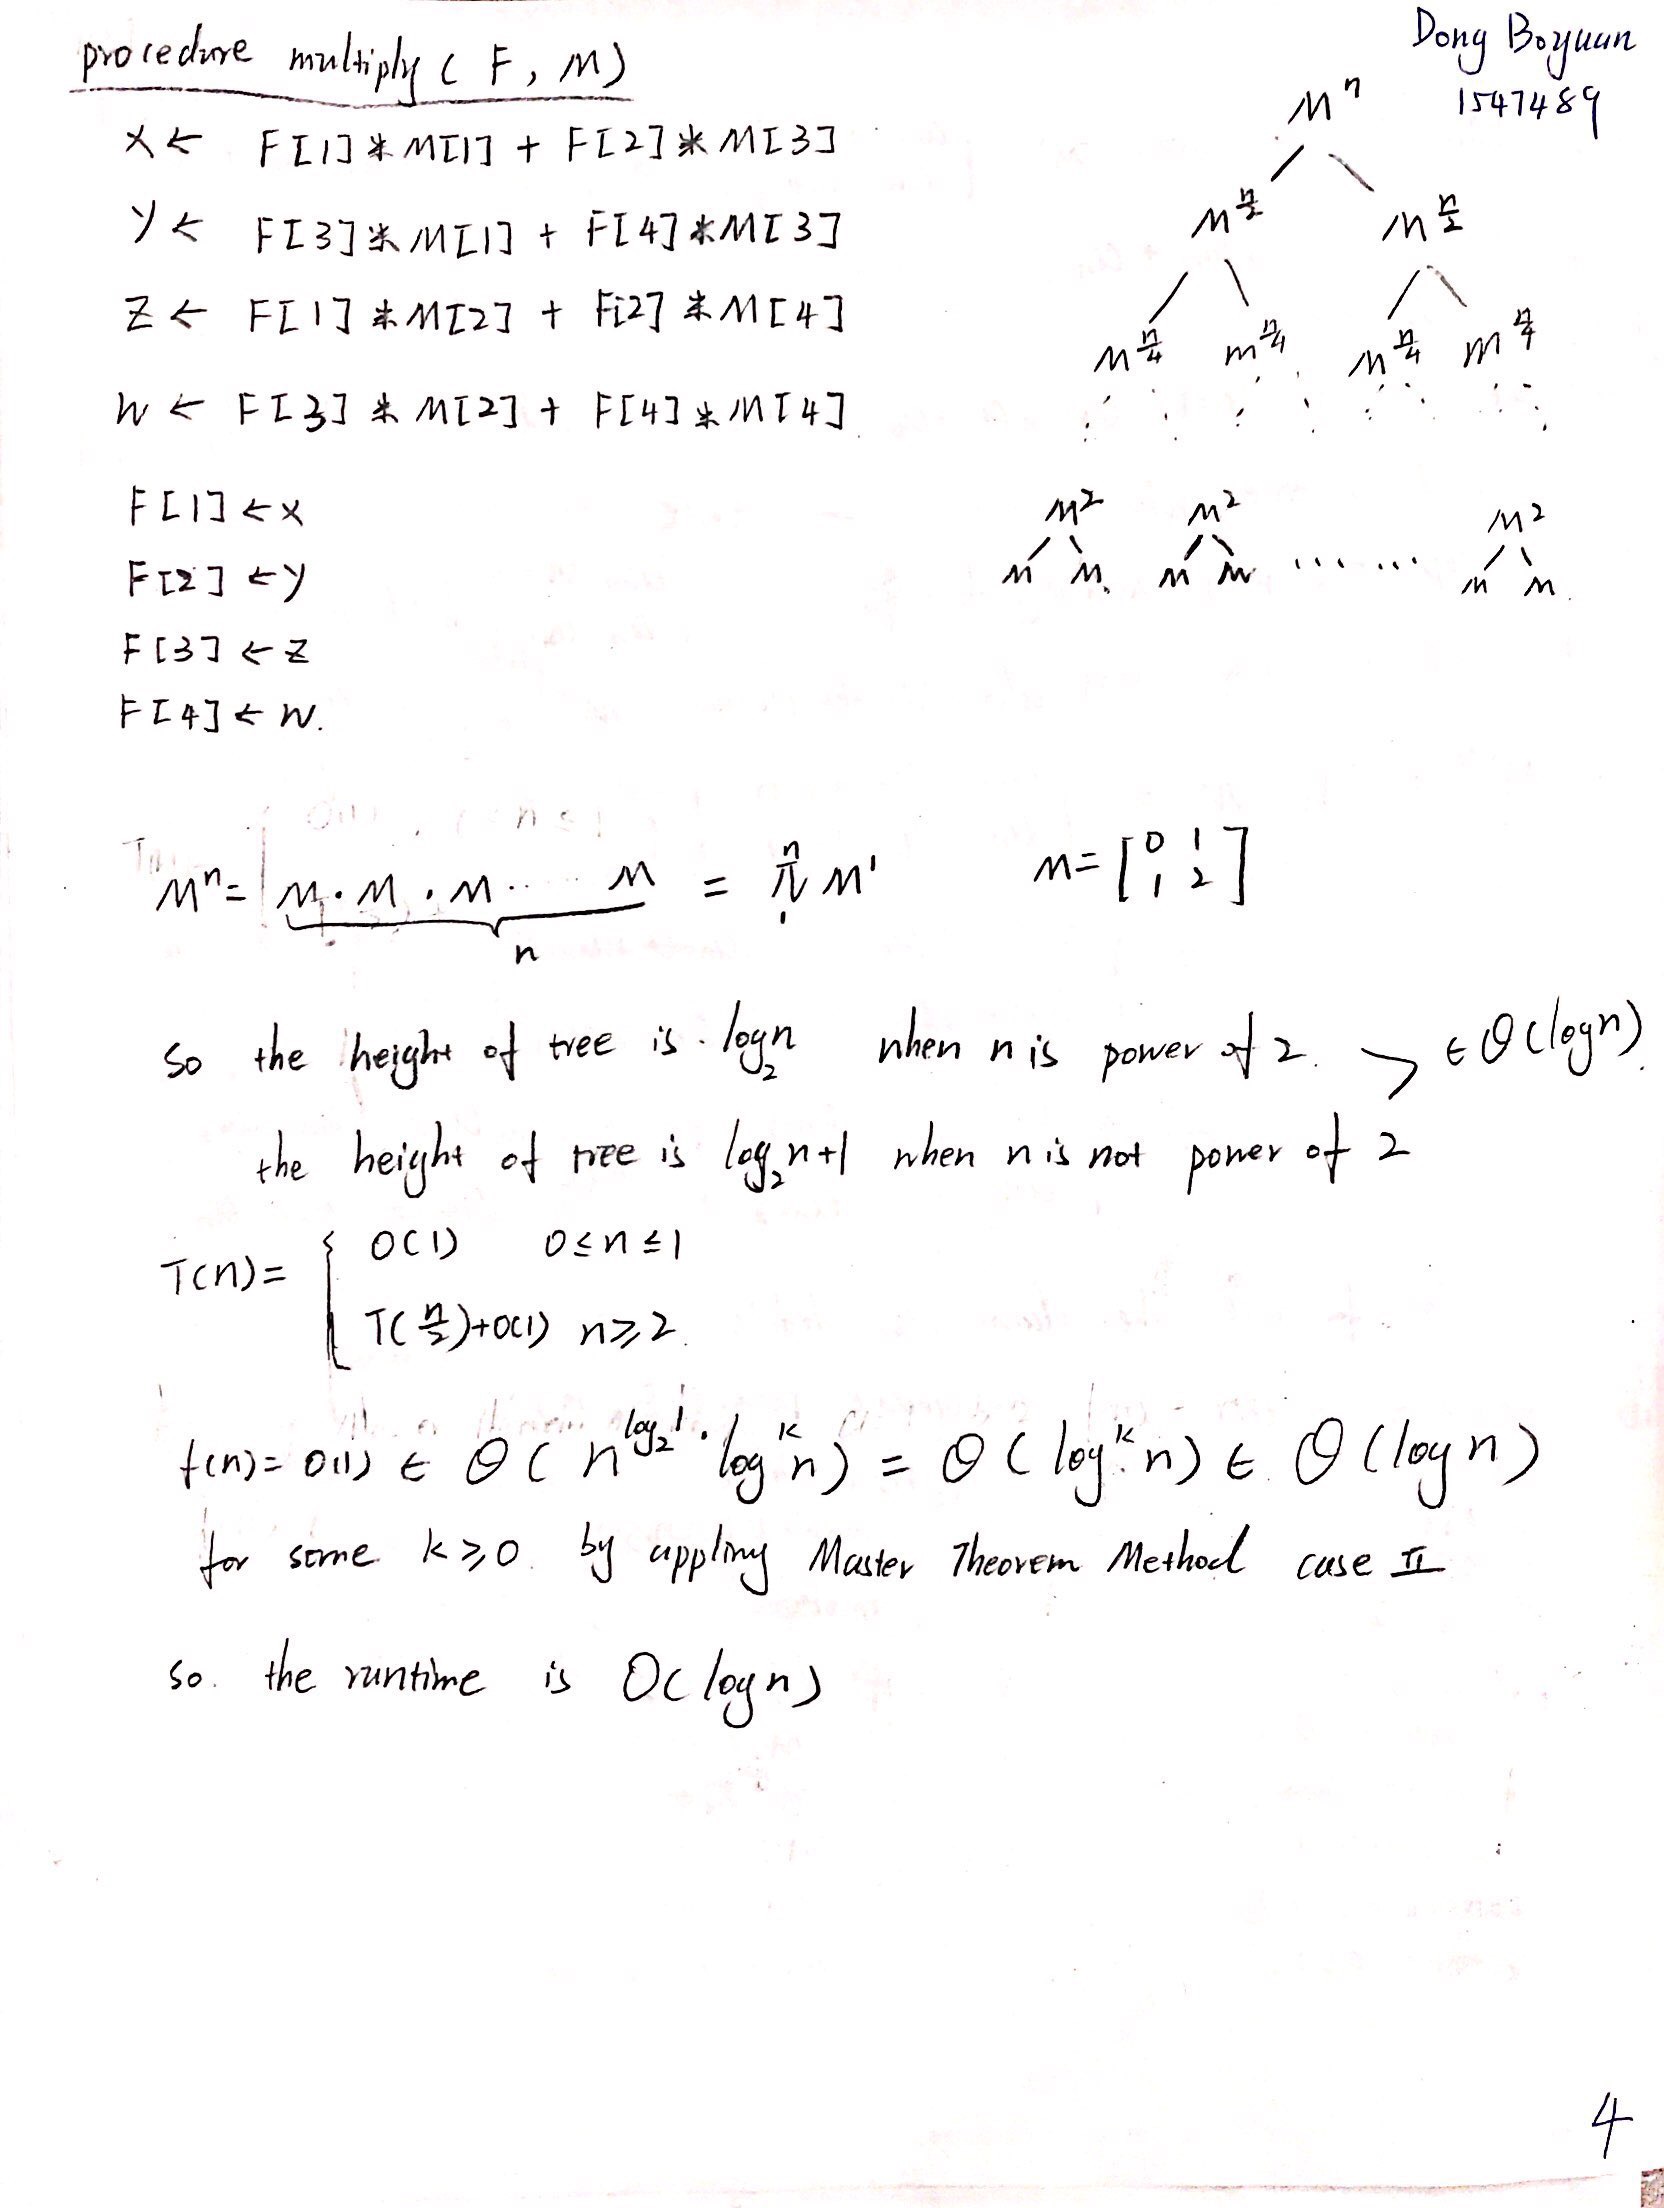 Dong Boyuan
1547489
procedure multiply ( F, M )
x ← F[1] * M[1] + F[2] * M[3]
y ← F[3] * M[1] + F[4] * M[3]
z ← F[1] * M[2] + F[2] * M[4]
w ← F[3] * M[2] + F[4] * M[4]
F[1] ← x
F[2] ← y
F[3] ← z
F[4] ← w.
M^n
M^(n/2) M^(n/2)
M^(n/4) M^(n/4) M^(n/4) M^(n/4)
M² M² M²
M M M M ...... M M
M^n = M · M · M ... M = π M' M = [0 1
1 2]
n
n
1
so the height of tree is log₂n when n is power of 2. > ∈ Θ(log n).
the height of tree is log₂n+1 when n is not power of 2
T(n) = { O(1) 0≤n≤1
T(n/2)+O(1) n≥2.
f(n) = O(1) ∈ Θ( n^(log₂1) · log^k n) = Θ( log^k n) ∈ Θ(log n)
for some k≥0. by appling Master Theorem Method case II
so. the runtime is O(log n)
4